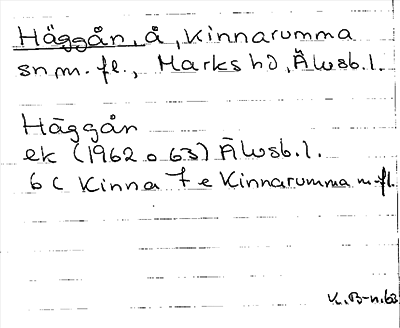 Häggån, å, Kinnarumma
sn m. fl., Marks hd, Älvsb. l.
Häggån
ek (1962 o 63) Älvsb. l.
6 C Kinna 7 e Kinnarumma m. fl.
K. B-n. 63